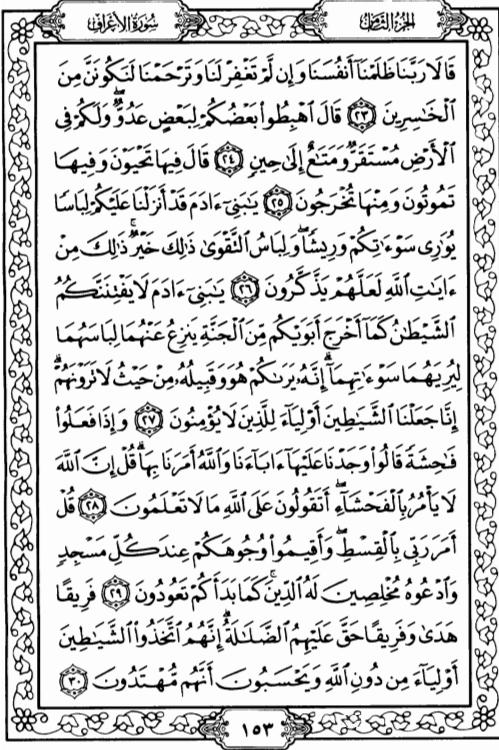 سُورَةُ الأَعْرَافِ
الجُزْءُ الثَّامِنُ
قَالَا رَبَّنَا ظَلَمْنَآ أَنفُسَنَا وَإِن لَّمْ تَغْفِرْ لَنَا وَتَرْحَمْنَا لَنَكُونَنَّ مِنَ
ٱلْخَٰسِرِينَ ٢٣ قَالَ ٱهْبِطُوا۟ بَعْضُكُمْ لِبَعْضٍ عَدُوٌّ ۖ وَلَكُمْ فِى
ٱلْأَرْضِ مُسْتَقَرٌّ وَمَتَٰعٌ إِلَىٰ حِينٍ ٢٤ قَالَ فِيهَا تَحْيَوْنَ وَفِيهَا
تَمُوتُونَ وَمِنْهَا تُخْرَجُونَ ٢٥ يَٰبَنِىٓ ءَادَمَ قَدْ أَنزَلْنَا عَلَيْكُمْ لِبَاسًا
يُوَٰرِى سَوْءَٰتِكُمْ وَرِيشًا ۖ وَلِبَاسُ ٱلتَّقْوَىٰ ذَٰلِكَ خَيْرٌ ۚ ذَٰلِكَ مِنْ
ءَايَٰتِ ٱللَّهِ لَعَلَّهُمْ يَذَّكَّرُونَ ٢٦ يَٰبَنِىٓ ءَادَمَ لَا يَفْتِنَنَّكُمُ
ٱلشَّيْطَٰنُ كَمَآ أَخْرَجَ أَبَوَيْكُم مِّنَ ٱلْجَنَّةِ يَنزِعُ عَنْهُمَا لِبَاسَهُمَا
لِيُرِيَهُمَا سَوْءَٰتِهِمَآ ۗ إِنَّهُۥ يَرَىٰكُمْ هُوَ وَقَبِيلُهُۥ مِنْ حَيْثُ لَا تَرَوْنَهُمْ ۗ
إِنَّا جَعَلْنَا ٱلشَّيَٰطِينَ أَوْلِيَآءَ لِلَّذِينَ لَا يُؤْمِنُونَ ٢٧ وَإِذَا فَعَلُوا۟
فَٰحِشَةً قَالُوا۟ وَجَدْنَا عَلَيْهَآ ءَابَآءَنَا وَٱللَّهُ أَمَرَنَا بِهَا ۗ قُلْ إِنَّ ٱللَّهَ
لَا يَأْمُرُ بِٱلْفَحْشَآءِ ۖ أَتَقُولُونَ عَلَى ٱللَّهِ مَا لَا تَعْلَمُونَ ٢٨ قُلْ
أَمَرَ رَبِّى بِٱلْقِسْطِ ۖ وَأَقِيمُوا۟ وُجُوهَكُمْ عِندَ كُلِّ مَسْجِدٍ
وَٱدْعُوهُ مُخْلِصِينَ لَهُ ٱلدِّينَ ۚ كَمَا بَدَأَكُمْ تَعُودُونَ ٢٩ فَرِيقًا
هَدَىٰ وَفَرِيقًا حَقَّ عَلَيْهِمُ ٱلضَّلَٰلَةُ ۗ إِنَّهُمُ ٱتَّخَذُوا۟ ٱلشَّيَٰطِينَ
أَوْلِيَآءَ مِن دُونِ ٱللَّهِ وَيَحْسَبُونَ أَنَّهُم مُّهْتَدُونَ ٣٠
١٥٣